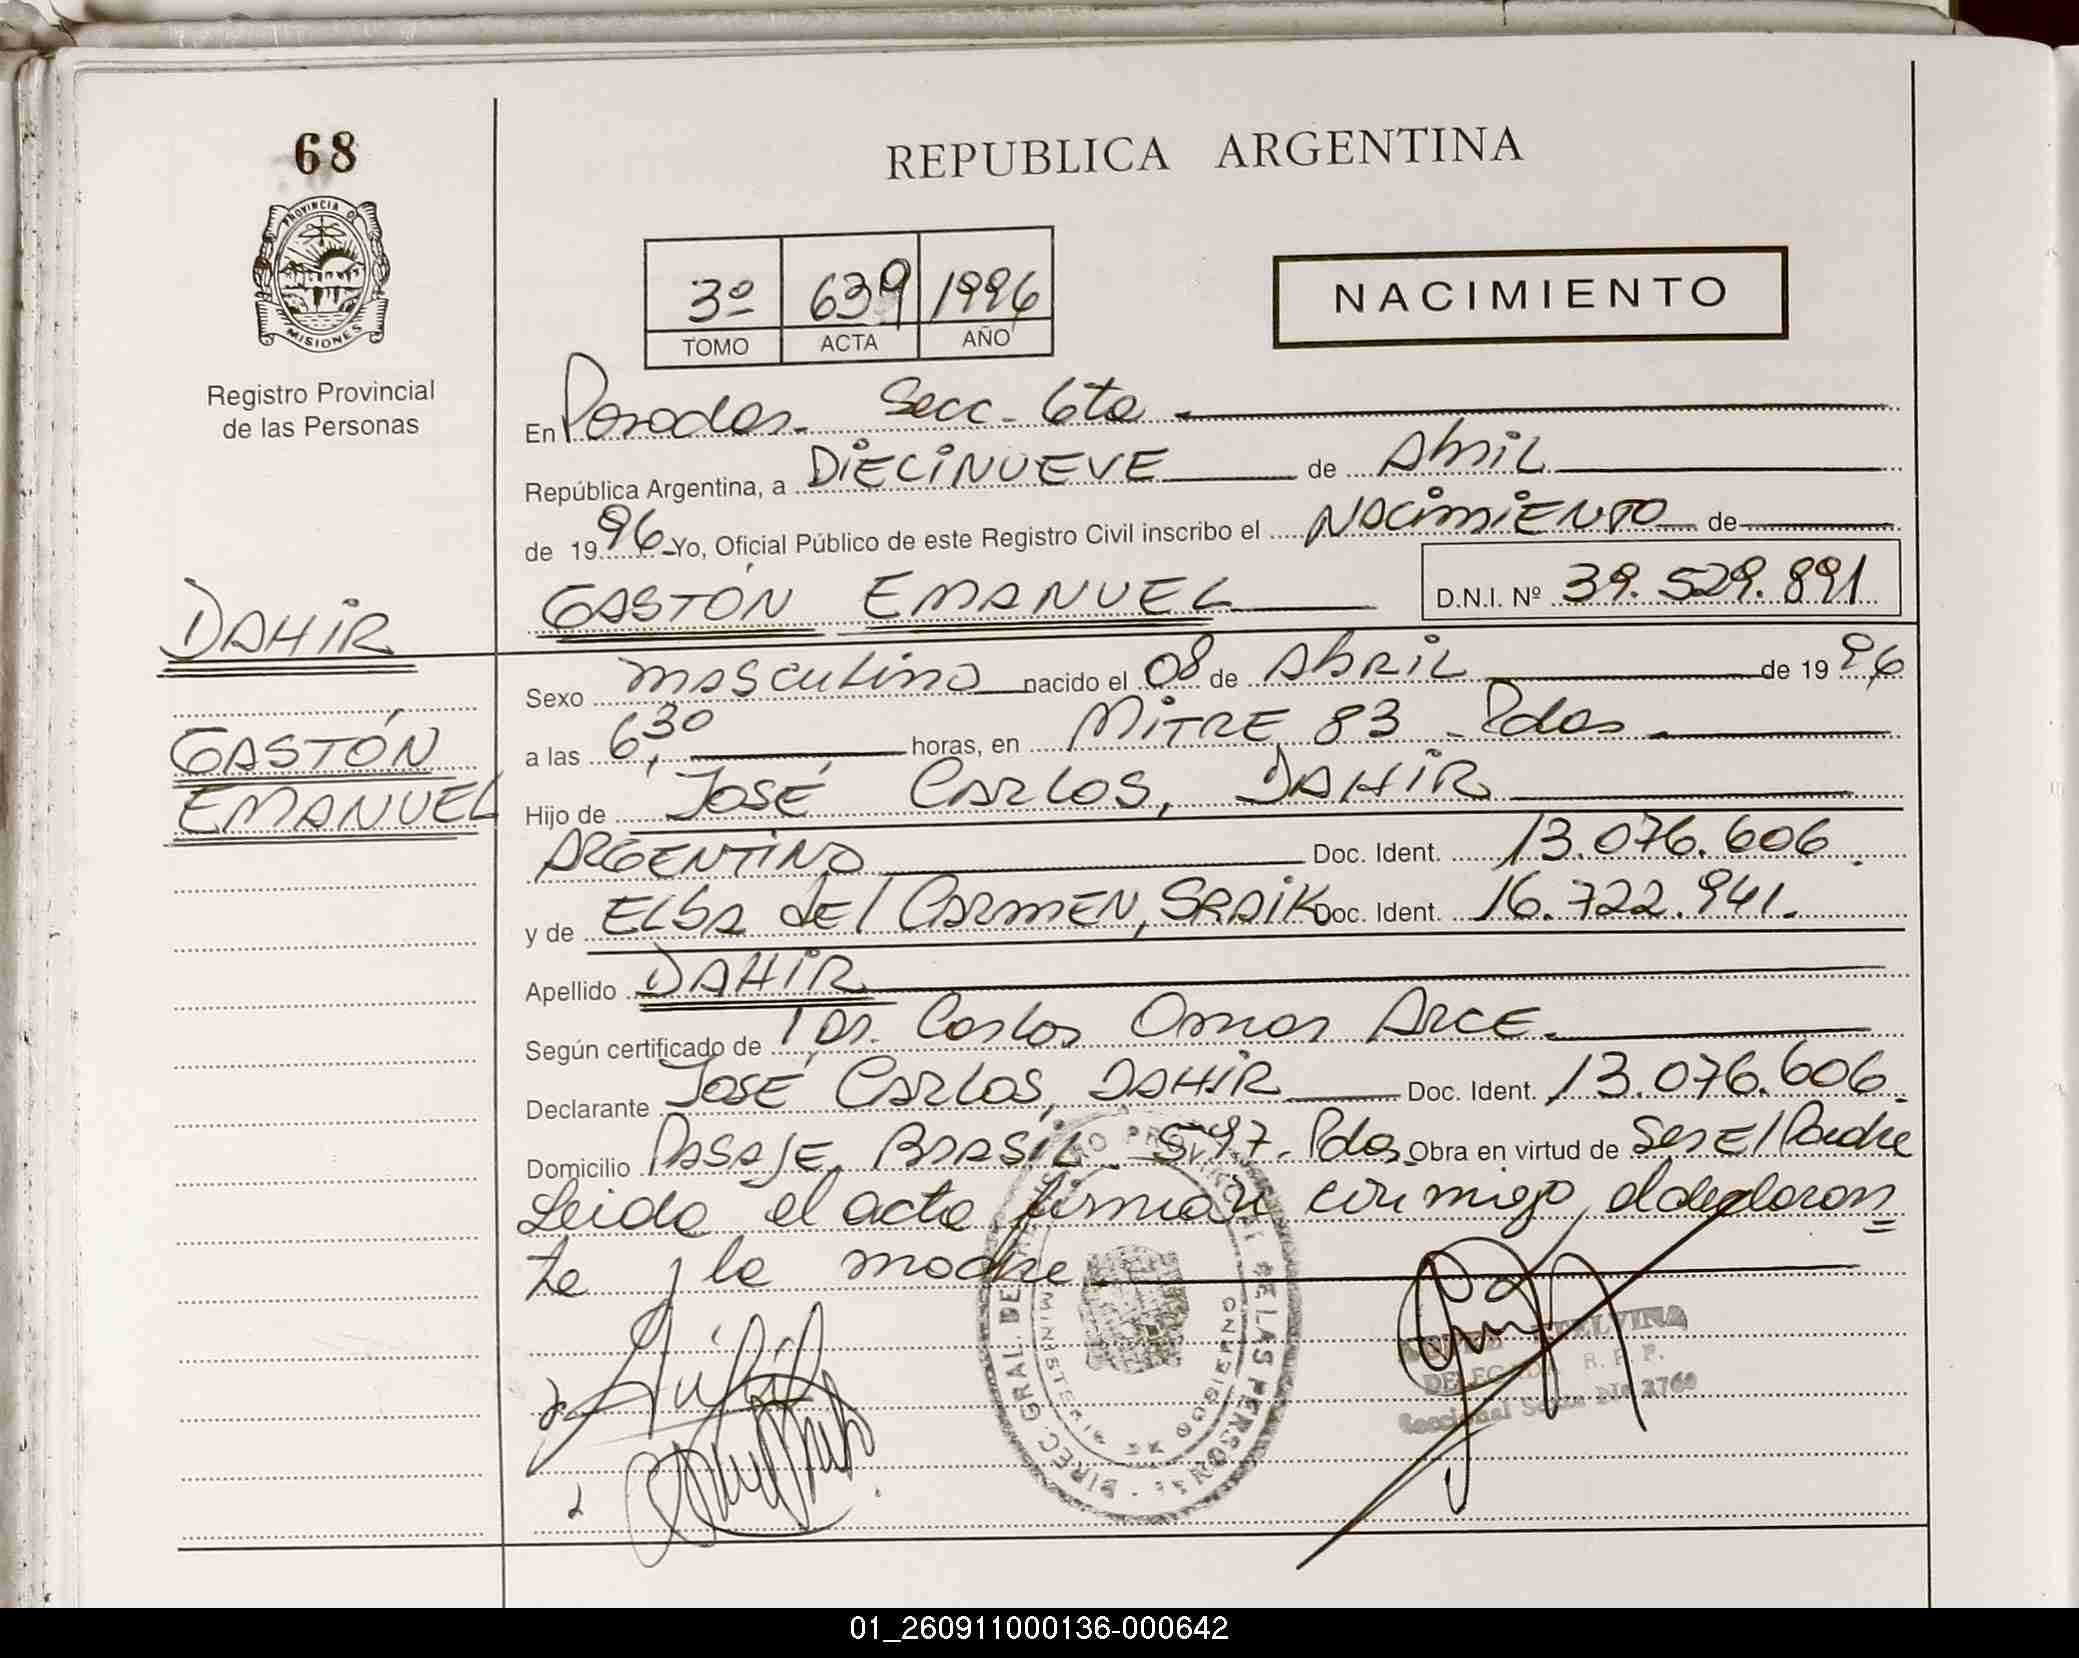 68
REPUBLICA ARGENTINA
PROVINCIA DE
MISIONES
Registro Provincial
de las Personas
3º 639 1996
TOMO ACTA AÑO
NACIMIENTO
En Posadas. Secc. 6ta
República Argentina, a DIECINUEVE de Abril
de 1996 Yo, Oficial Público de este Registro Civil inscribo el NACIMIENTO de
GASTÓN EMANUEL D.N.I. Nº 39.529.891
DAHIR
Sexo masculino nacido el 08 de ABRIL de 1996
GASTÓN
a las 6,30 horas, en MITRE 83 - Pdas
EMANUEL
Hijo de JOSÉ CARLOS, DAHIR
ARGENTINO Doc. Ident. 13.076.606.
y de ELBA del CARMEN, SRAIK Doc. Ident. 16.722.941.
Apellido DAHIR
Según certificado de Dr. Carlos Omar ARCE.
Declarante JOSÉ CARLOS, DAHIR Doc. Ident. 13.076.606.
Domicilio PASAJE BRASIL 5497. Pdas. Obra en virtud de Ser El Padre
Leida el acta firman conmigo, el declaran=
te y la madre
DIREC. GRAL. DEL REGISTRO PROVINCIAL DE LAS PERSONAS
MINISTERIO DE GOBIERNO
ETELVINA
DELEGADA R. P. P.
Seccional Sexta DTO 2760
01_260911000136-000642